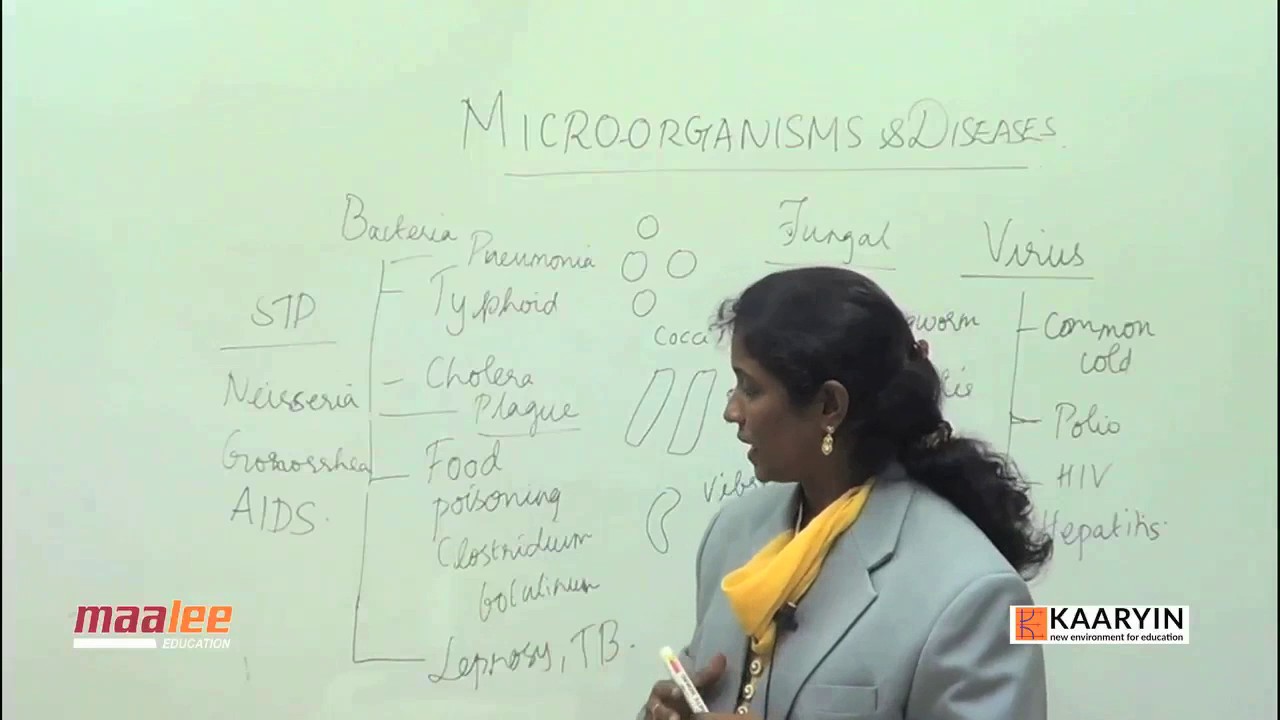 MICROORGANISMS & DISEASES.
Bacteria
Pneumonia
Typhoid
Cholera
Plague
Food
poisoning
Clostridium
botulinum
Leprosy, TB.
STD
Neisseria
Gonorrhea
AIDS.
Cocca
Fungal
Virus
Common
cold
Polio
HIV
Hepatitis.
maalee
EDUCATION
KAARYIN
new environment for education